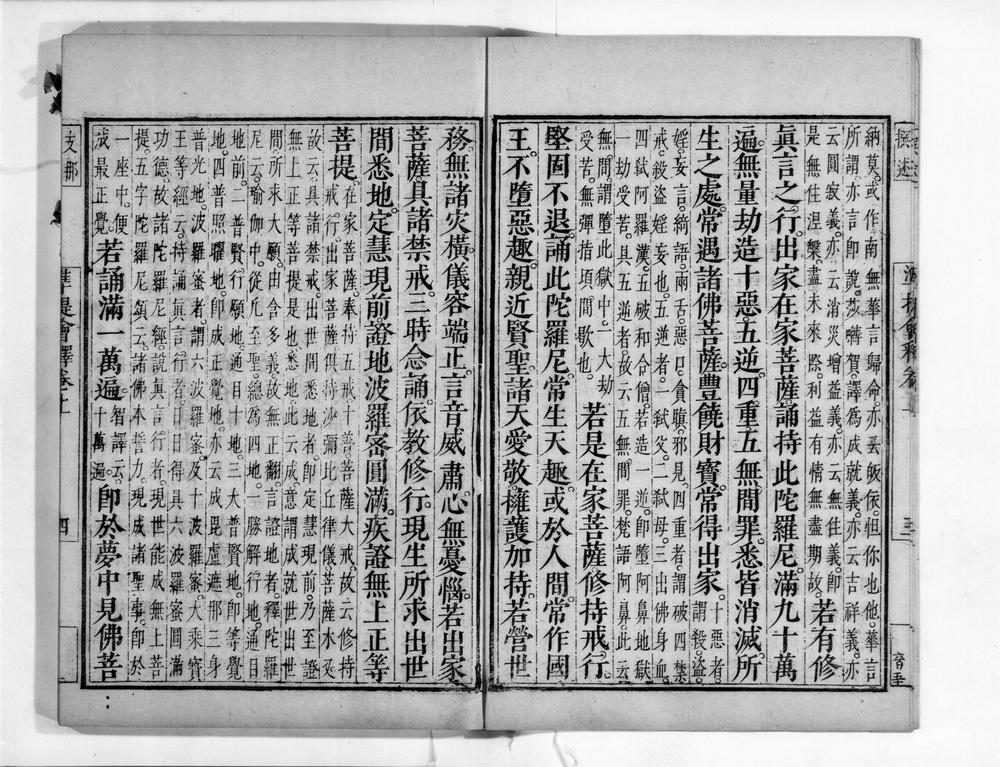 納莫。或作南無。華言歸命。亦云皈依。怛你也他。華言
所謂。亦言即說。莎嚩賀。譯為成就義。亦云吉祥義。亦
云圓寂義。亦云消災增益義。亦云無住義。即
是無住涅槃。盡未來際。利益有情無盡期故。若有修
眞言之行。出家在家菩薩。誦持此陀羅尼。滿九十萬
遍。無量劫造十惡。五逆。四重。五無間罪。悉皆消滅。所
生之處。常遇諸佛菩薩。豐饒財寶。常得出家。十惡者。謂殺。盜。
婬。妄言。綺語。兩舌。惡口。貪瞋。邪見。四重者。謂破四禁
戒。殺盜婬妄也。五逆者。一弒父。二弒母。三出佛身血。
四弒阿羅漢。五破和合僧。若造一逆。即墮阿鼻地獄
一劫受苦。具五逆者。故云五無間罪。梵語阿鼻。此云
無間。謂墮此獄中。一大劫
受苦。無彈指頃間歇也。若是在家菩薩。修持戒行。
堅固不退。誦此陀羅尼。常生天趣。或於人間常作國
王。不墮惡趣。親近賢聖。諸天愛敬。擁護加持。若營世
務。無諸灾橫。儀容端正。言音威肅。心無憂惱。若出家
菩薩具諸禁戒。三時念誦。依教修行。現生所求出世
間悉地。定慧現前。證地波羅密圓滿。疾證無上正等
菩提。在家菩薩。奉持五戒十善菩薩大戒。故云修持
戒行。出家菩薩。俱持沙彌比丘律儀。菩薩
故云具諸禁戒。出世間悉地者。即定慧現前。乃至證
無上正等菩提是也。悉地。此云成。意謂成就世出世
間所求大願。由含多義故無正翻。言證地者。釋陀羅
尼云。瑜伽中。從凡至聖。總為四地。一勝解行地。通目
地前。二普賢行願地。通目十地。三大普賢地。即等覺
地。四普照曜地。即成正覺地。亦云成毘盧遮那三身
普光地。波羅蜜者。謂六波羅蜜。及十波羅蜜。大乘寶
王等經云。持誦眞言行者。日日得具六波羅蜜圓滿
功德。故諸陀羅尼經。說眞言行者。現世能成無上菩
提。五字陀羅尼頌云。諸佛本誓力。現成諸聖事。即於
一座中。便
成最正覺。若誦滿一萬遍。智譯云。十萬遍。即於夢中見佛菩
支那
準提會釋卷上
四